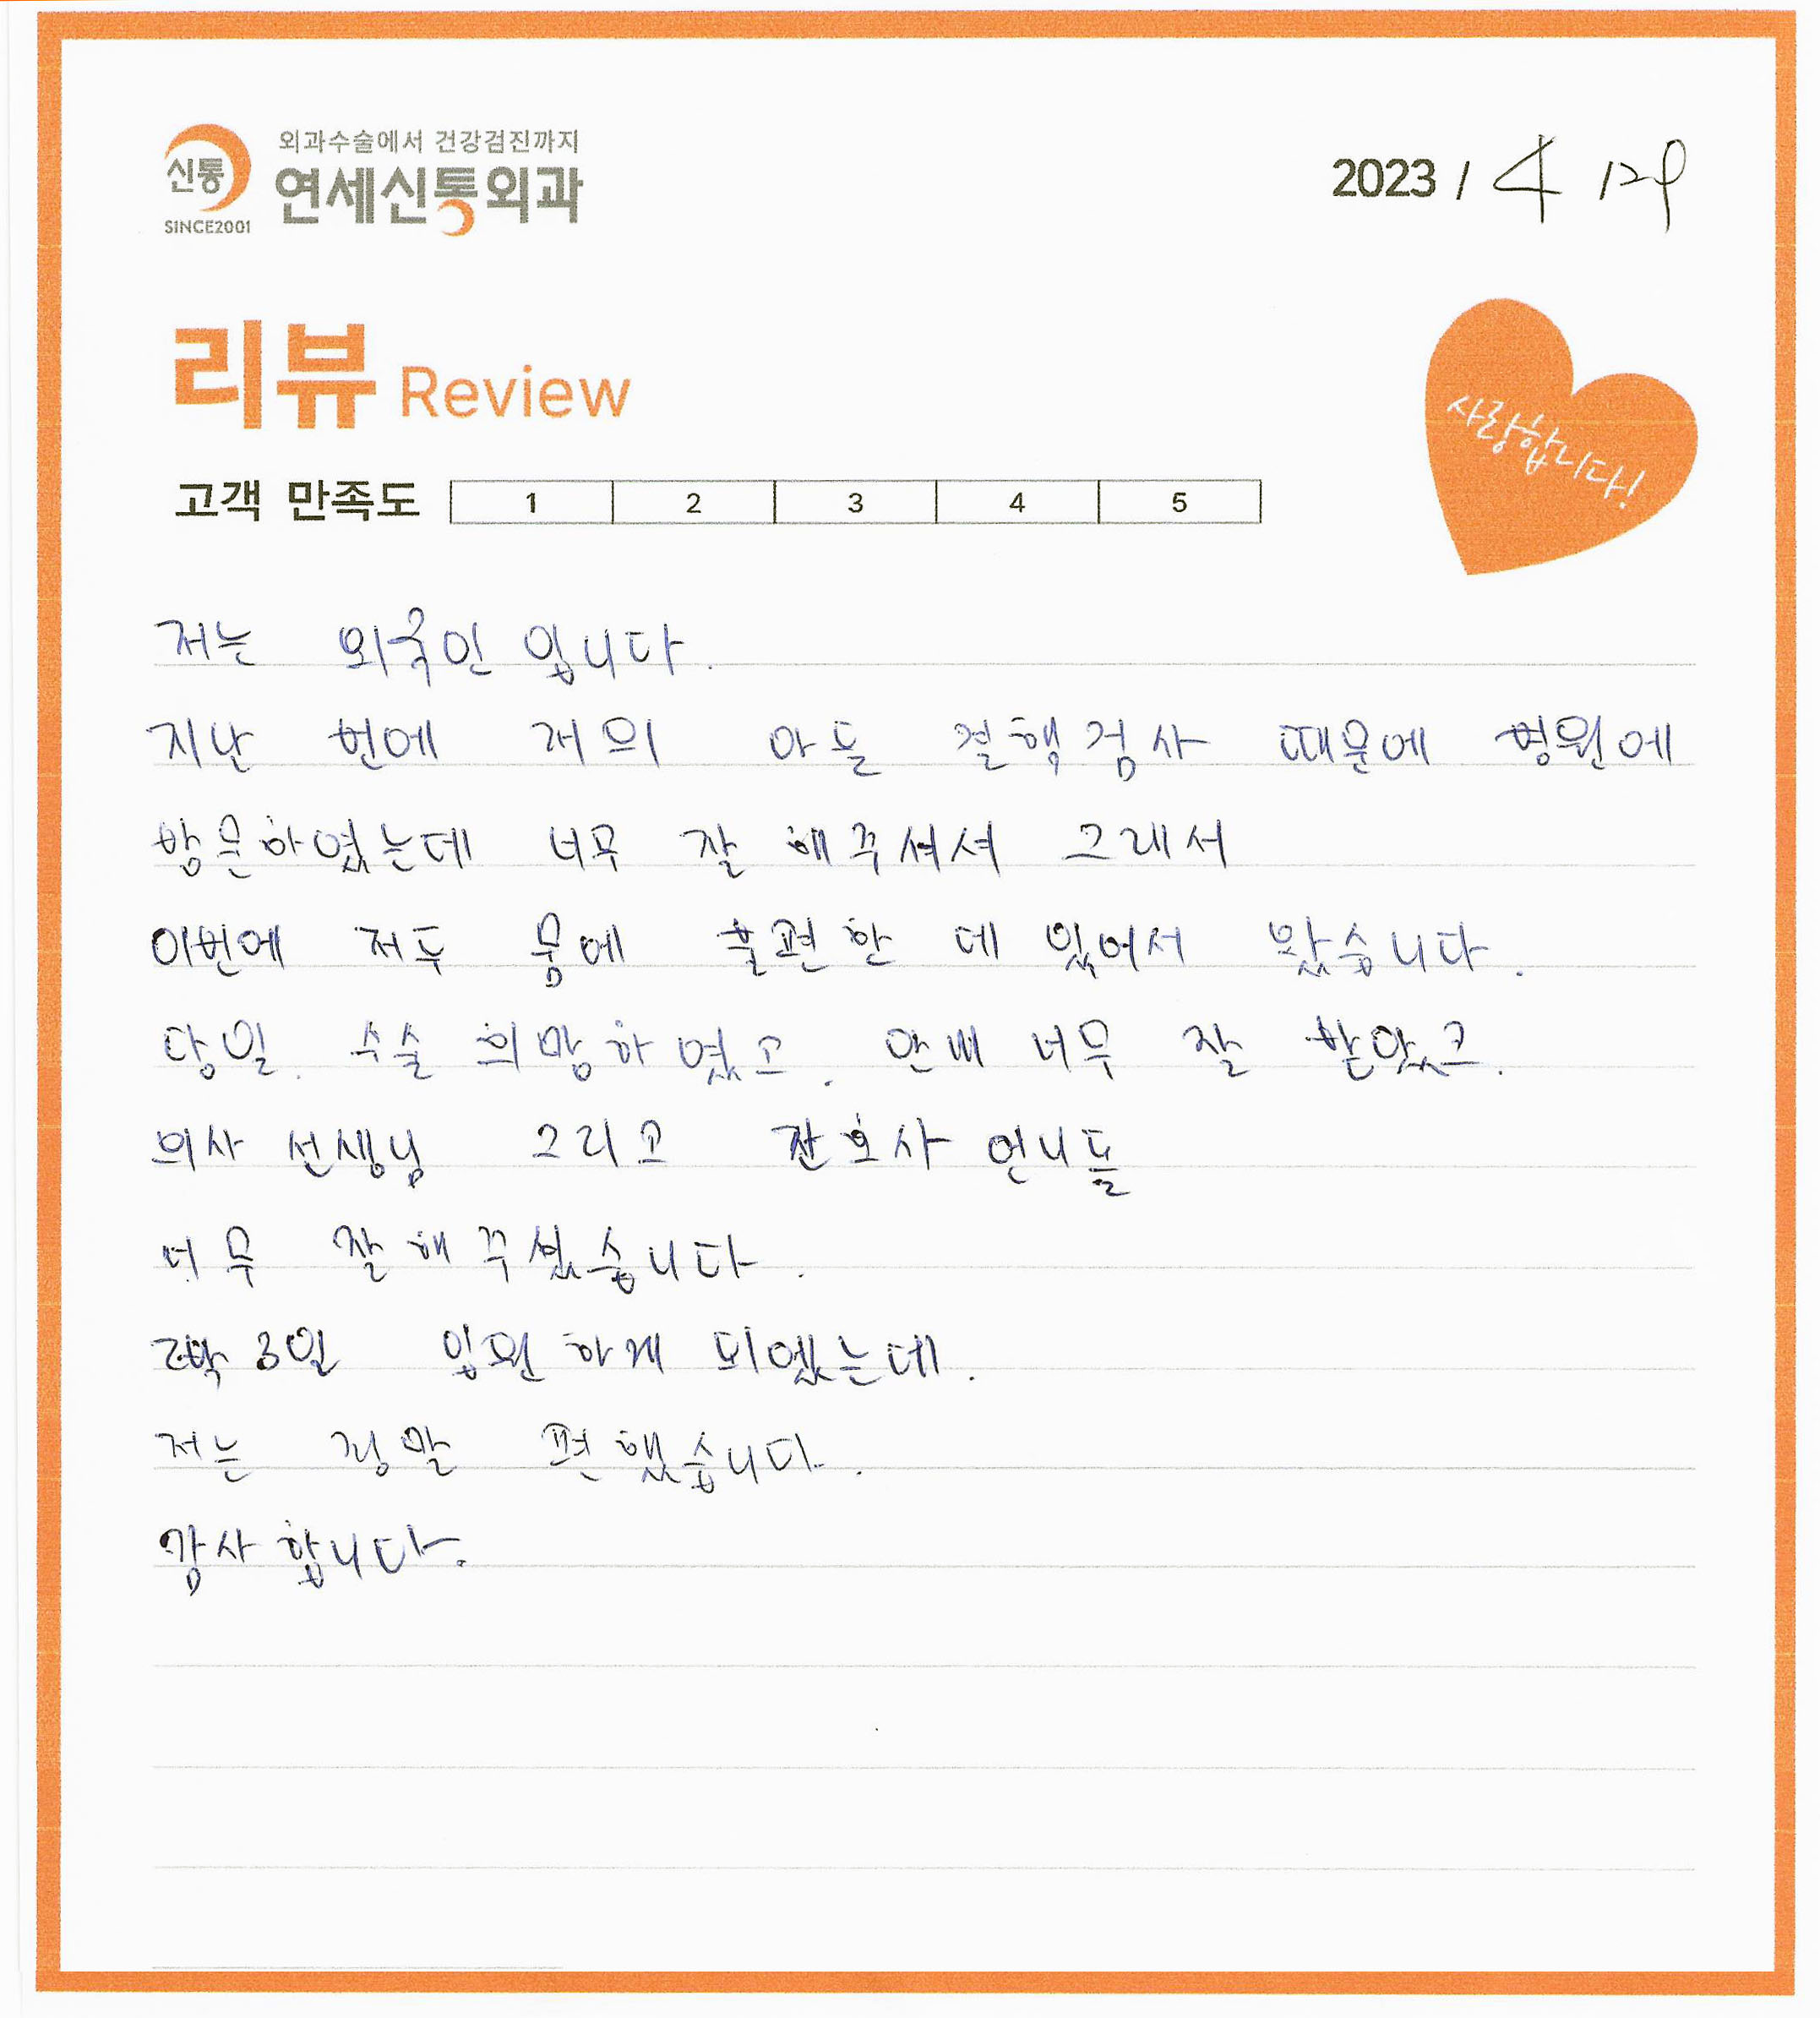 외과수술에서 건강검진까지
신통 연세신통외과
SINCE2001
2023 / 4 / 29
리뷰 Review
사랑합니다!
고객 만족도 1 2 3 4 5
저는 외국인 입니다.
지난 번에 저의 아들 결핵검사 때문에 병원에
방문하였는데 너무 잘 해주셔서 그래서
이번에 저두 몸에 불편한 데 있어서 왔습니다.
당일. 수술 희망하였고. 안내 너무 잘 받았고.
의사 선생님 그리고 간호사 언니들
너무 잘해 주셨습니다.
2박 3일 입원하게 되였는데.
저는 정말 편했습니다.
감사합니다.